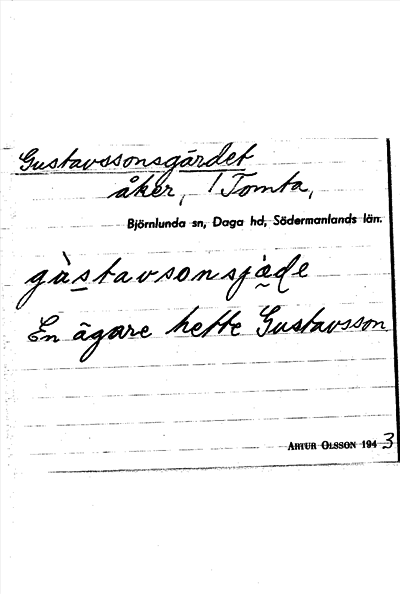 Gustavssonsgärdet
åker, 1 Tomta,
Björnlunda sn, Daga hd, Södermanlands län.
gùs̲tavsonsjæ̀de
En ägare hette Gustavsson
ARTUR OLSSON 1943